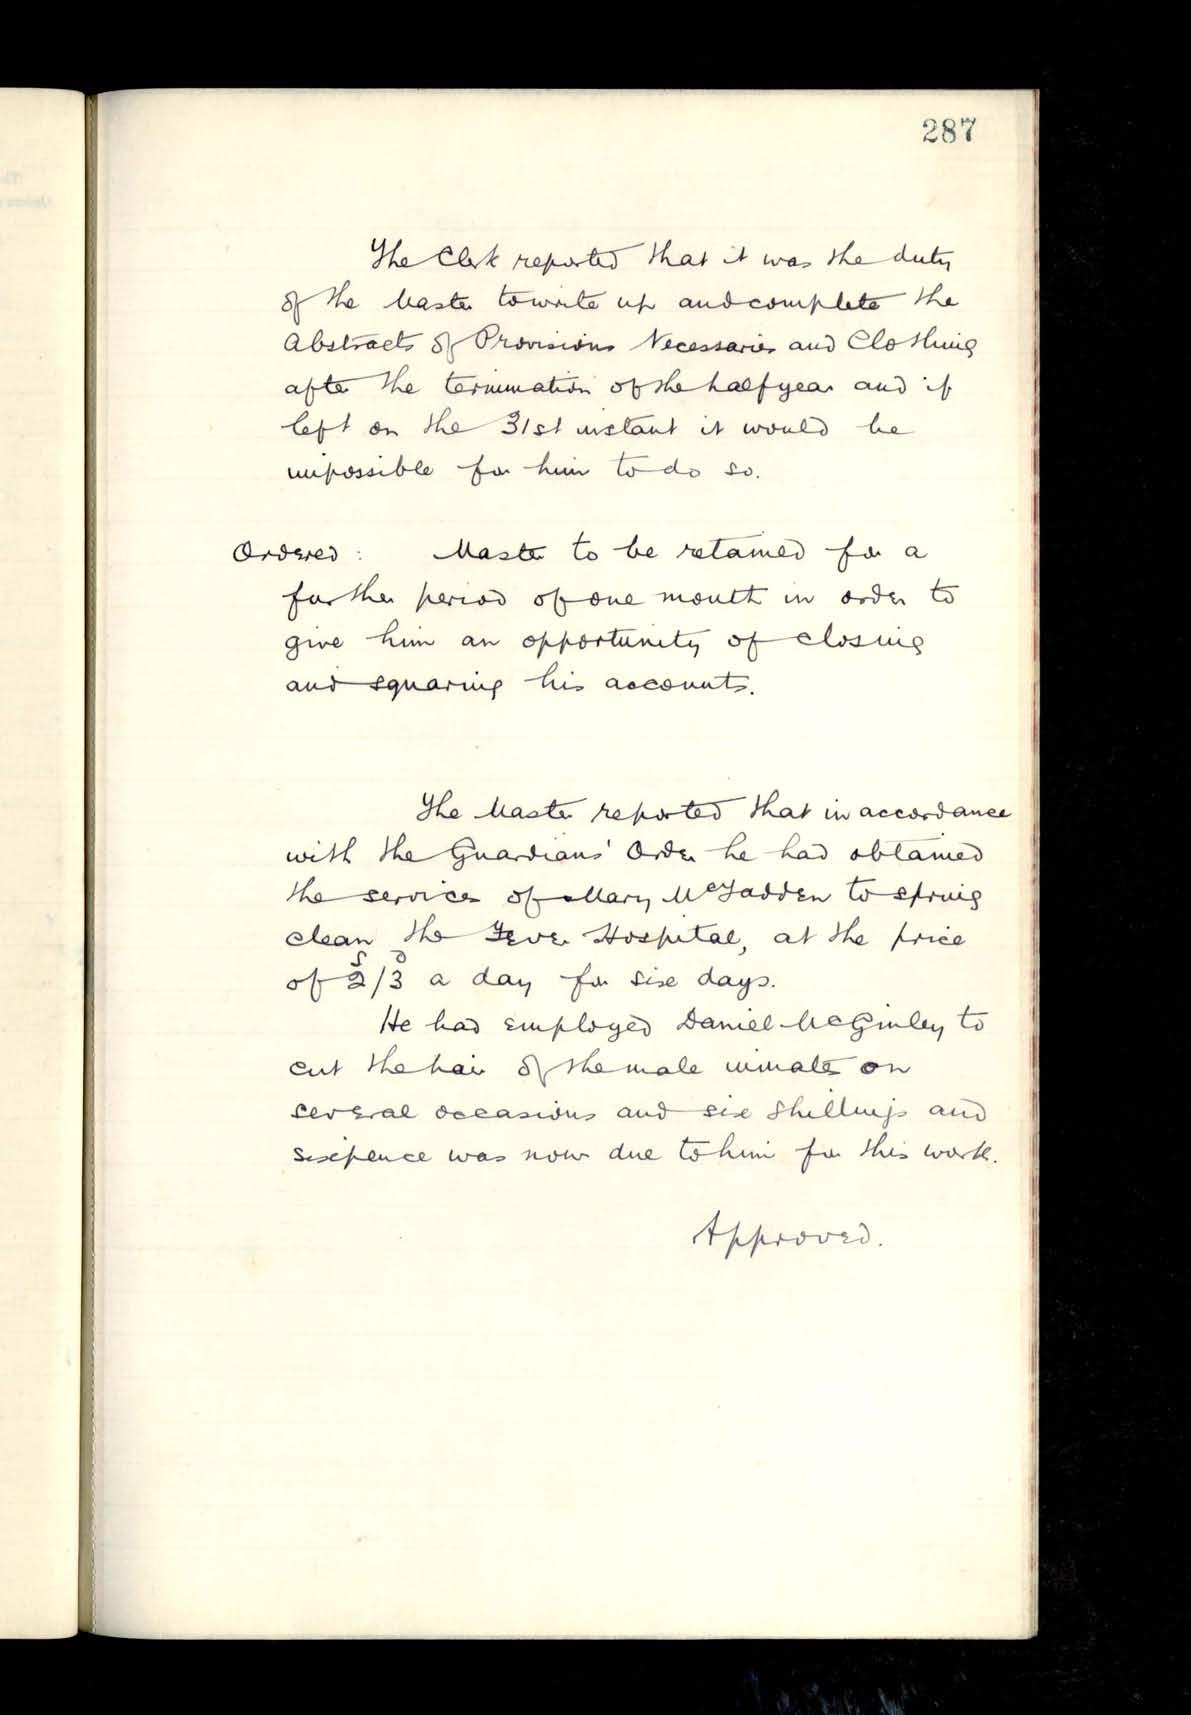 287
The Clerk reported that it was the duty
of the Master to write up and complete the
Abstracts of Provisions Necessaries and Clothing
after the termination of the half year and if
left on the 31st instant it would be
impossible for him to do so.
Ordered : Master to be retained for a
further period of one month in order to
give him an opportunity of closing
and squaring his accounts.
The Master reported that in accordance
with the Guardians' Order he had obtained
the services of Mary McFadden to spring
clean the Fever Hospital, at the price
of 2s/3d a day for six days.
He had employed Daniel McGinley to
cut the hair of the male inmates on
several occasions and six shillings and
sixpence was now due to him for this work.
Approved.